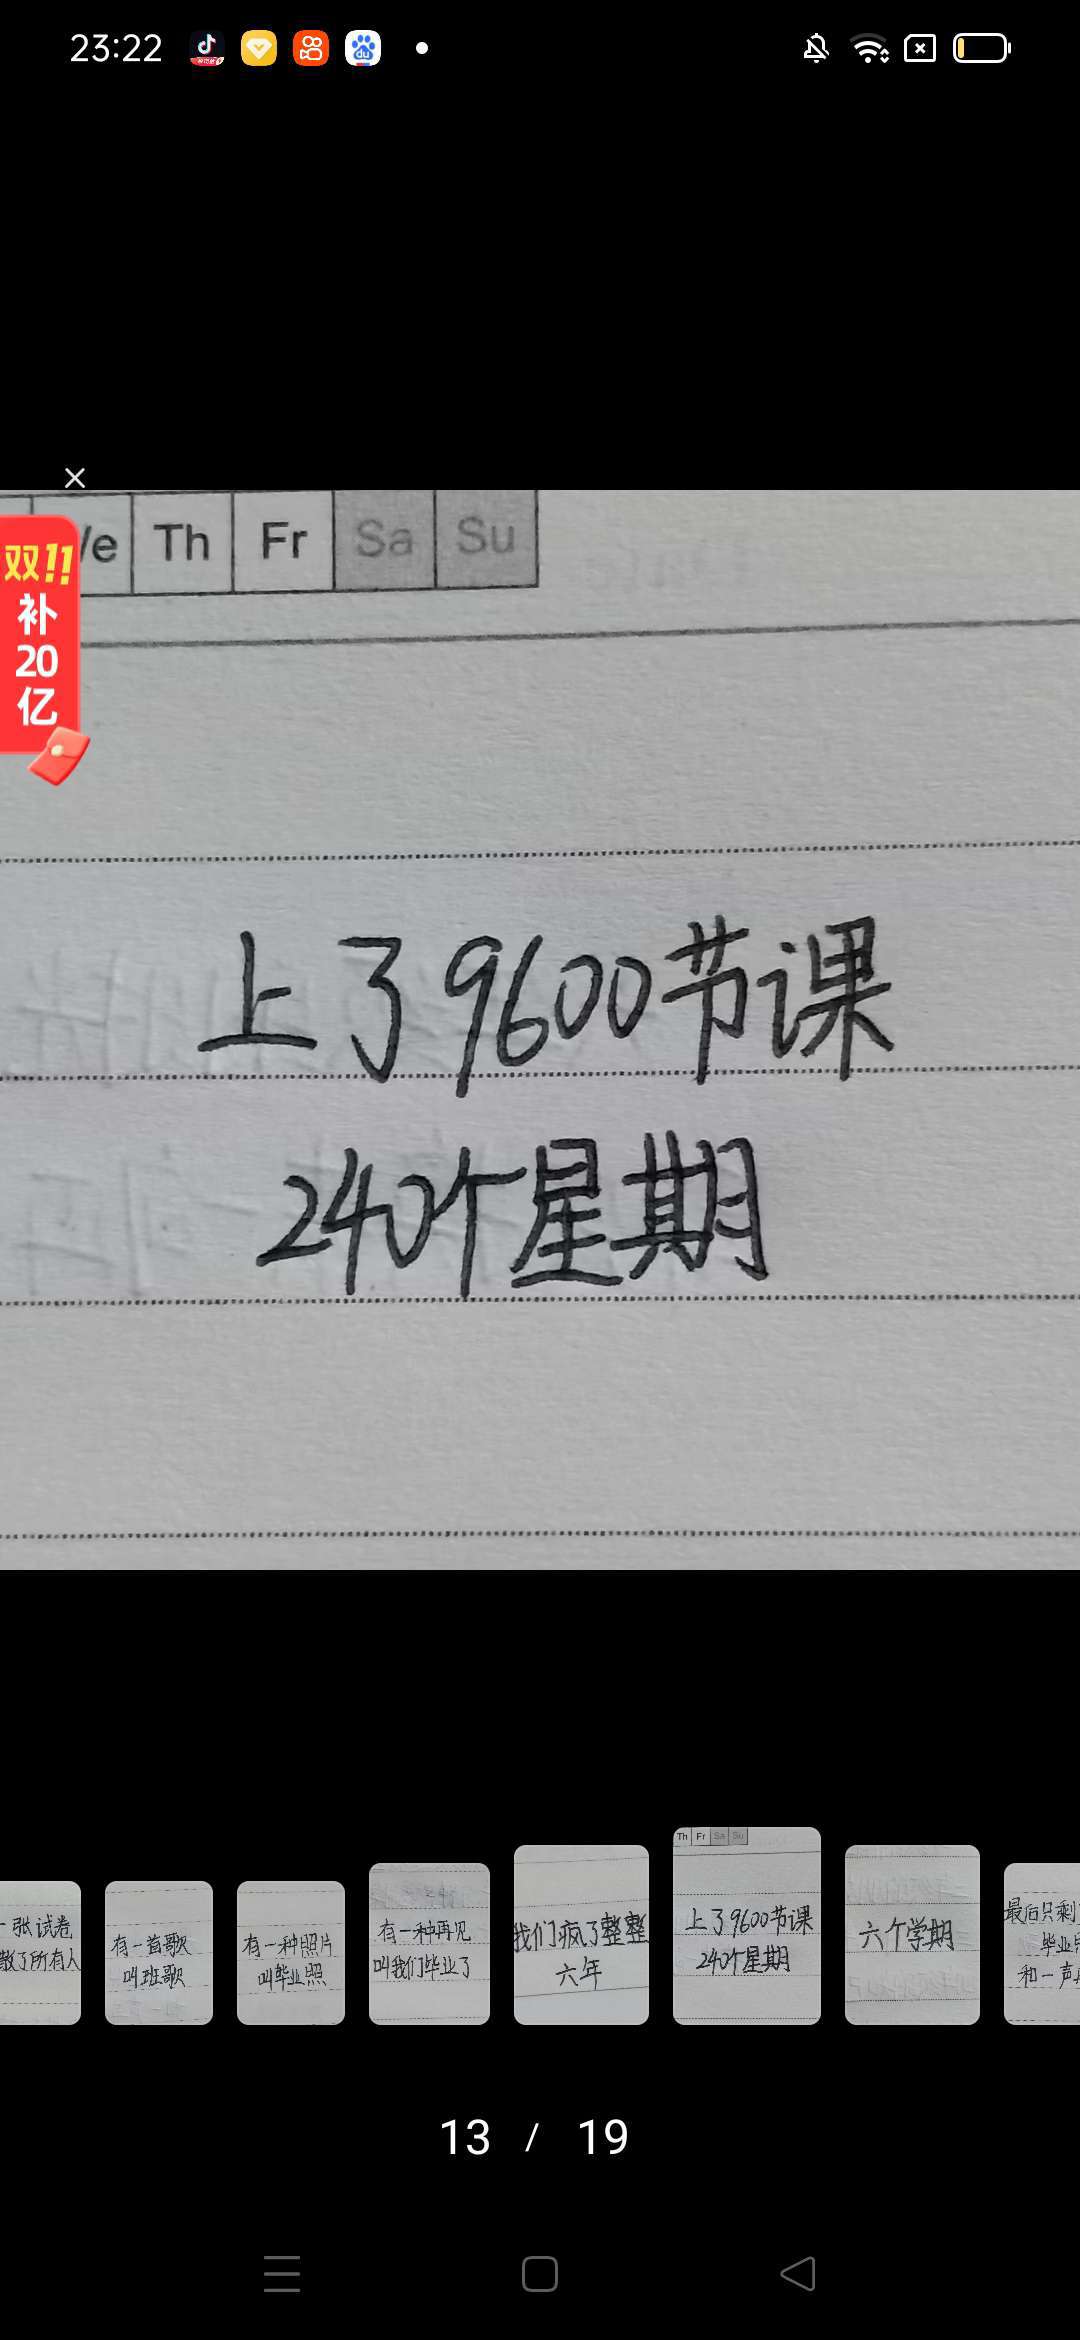 23:22
du
We Th Fr Sa Su
双11
补
20
亿
上了9600节课
240个星期
一张试卷
散了所有人
有一首歌
叫班歌
有一种照片
叫毕业照
有一种再见
叫我们毕业了
我们疯了整整
六年
Th Fr Sa Su
上了9600节课
240个星期
六个学期
最后只剩
毕业
和一声
13 / 19